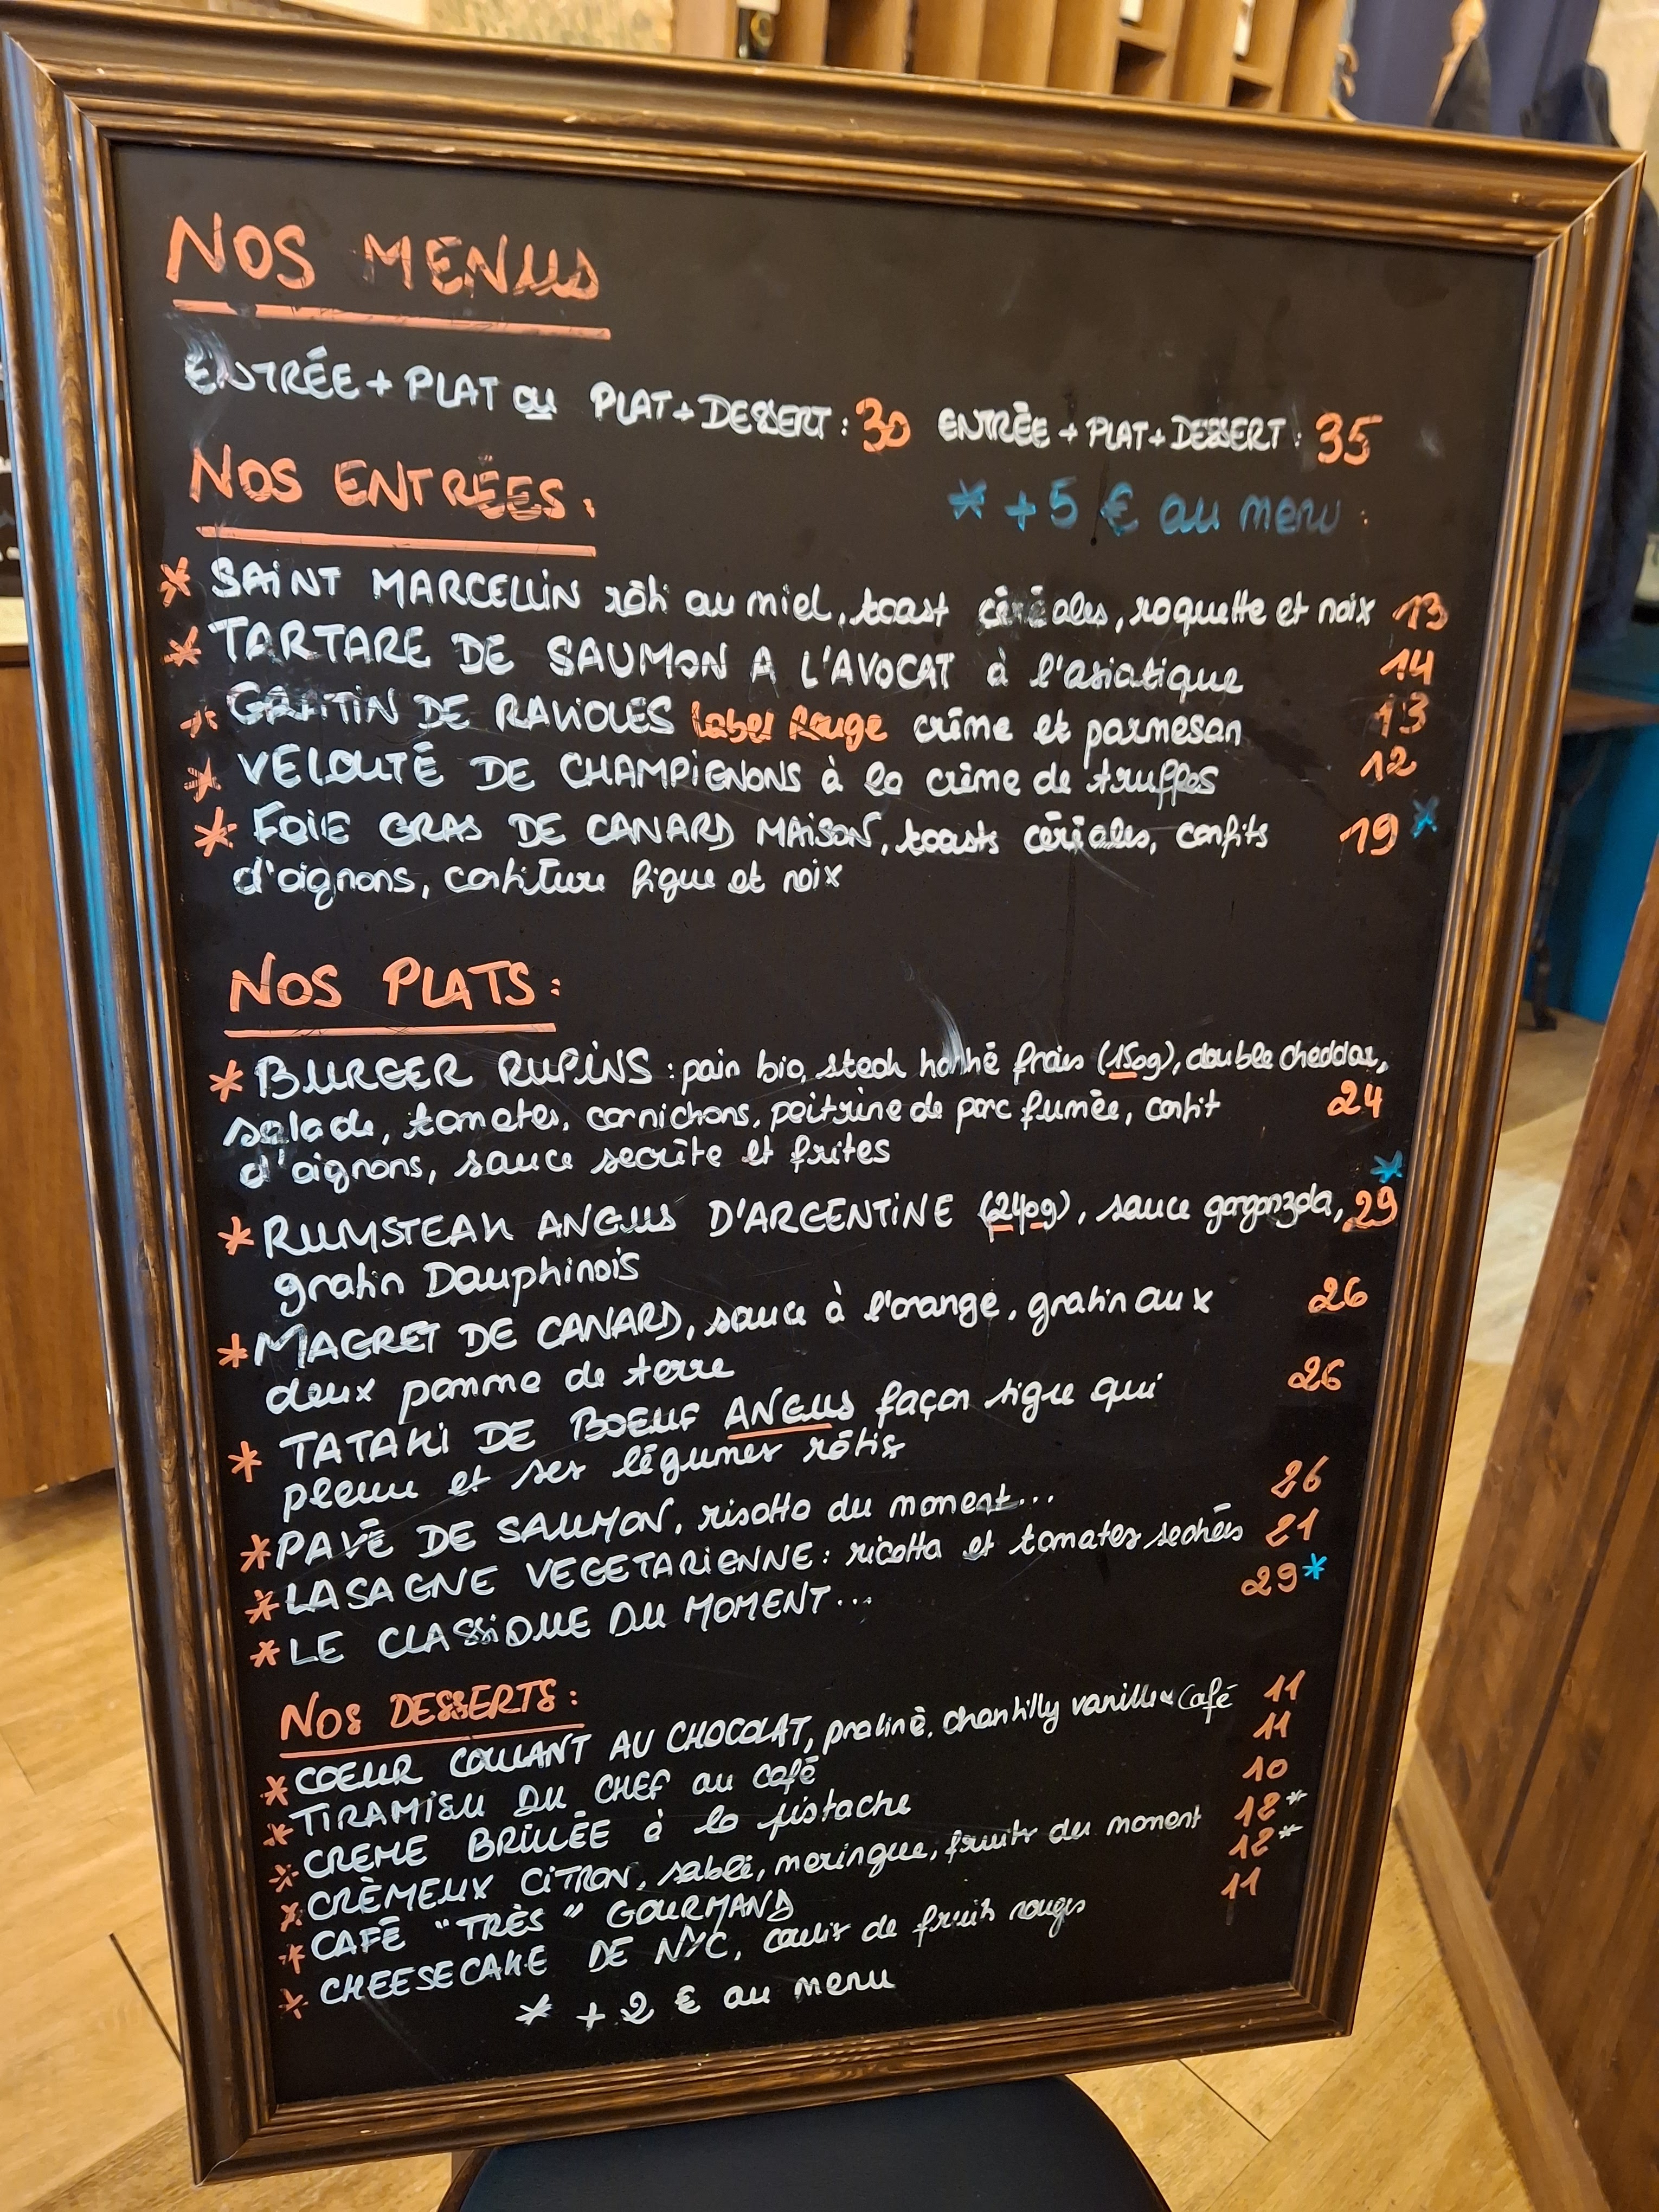 NOS MENUS
ENTRÉE + PLAT ou PLAT + DESSERT : 30 ENTRÉE + PLAT + DESSERT : 35
NOS ENTRÉES :
* +5 € au menu
* SAINT MARCELLIN rôti au miel, toast céréales, roquette et noix 13
* TARTARE DE SAUMON A L'AVOCAT à l'asiatique 14
* GRATIN DE RAVIOLES Label Rouge crème et parmesan 13
* VELOUTÉ DE CHAMPIGNONS à la crème de truffes 12
* FOIE GRAS DE CANARD MAISON, toasts céréales, confits 19 *
d'oignons, confiture figue et noix
NOS PLATS :
* BURGER RUPINS : pain bio, steak haché frais (150g), double cheddar,
salade, tomates, cornichons, poitrine de porc fumée, confit 24
d'oignons, sauce secrète et frites
* RUMSTEAK ANGUS D'ARGENTINE (240g), sauce gorgonzola, 29 *
gratin Dauphinois
* MAGRET DE CANARD, sauce à l'orange, gratin aux 26
deux pomme de terre
* TATAKI DE BOEUF ANGUS façon tigre qui 26
pleure et ses légumes rôtis
* PAVÉ DE SAUMON, risotto du moment... 26
* LASAGNE VEGETARIENNE : ricotta et tomates sechées 21
* LE CLASSIQUE DU MOMENT... 29 *
NOS DESSERTS :
* COEUR COULANT AU CHOCOLAT, praliné, chantilly vanille Café 11
* TIRAMISU DU CHEF au Café 11
* CREME BRULÉE à la pistache 10
* CRÈMEUX CITRON, sablé, meringue, fruits du moment 12 *
* CAFÉ "TRÈS" GOURMAND 12 *
* CHEESECAKE DE NYC, coulis de fruits rouges 11
* + 2 € au menu